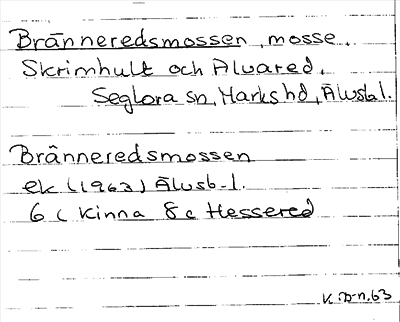 Bränneredsmossen, mosse,
Skrimhult och Alvared,
Seglora sn, Marks hd, Älvsb.l.
Bränneredsmossen
ek (1963) Älvsb.l.
6 c Kinna 8 c Hessered